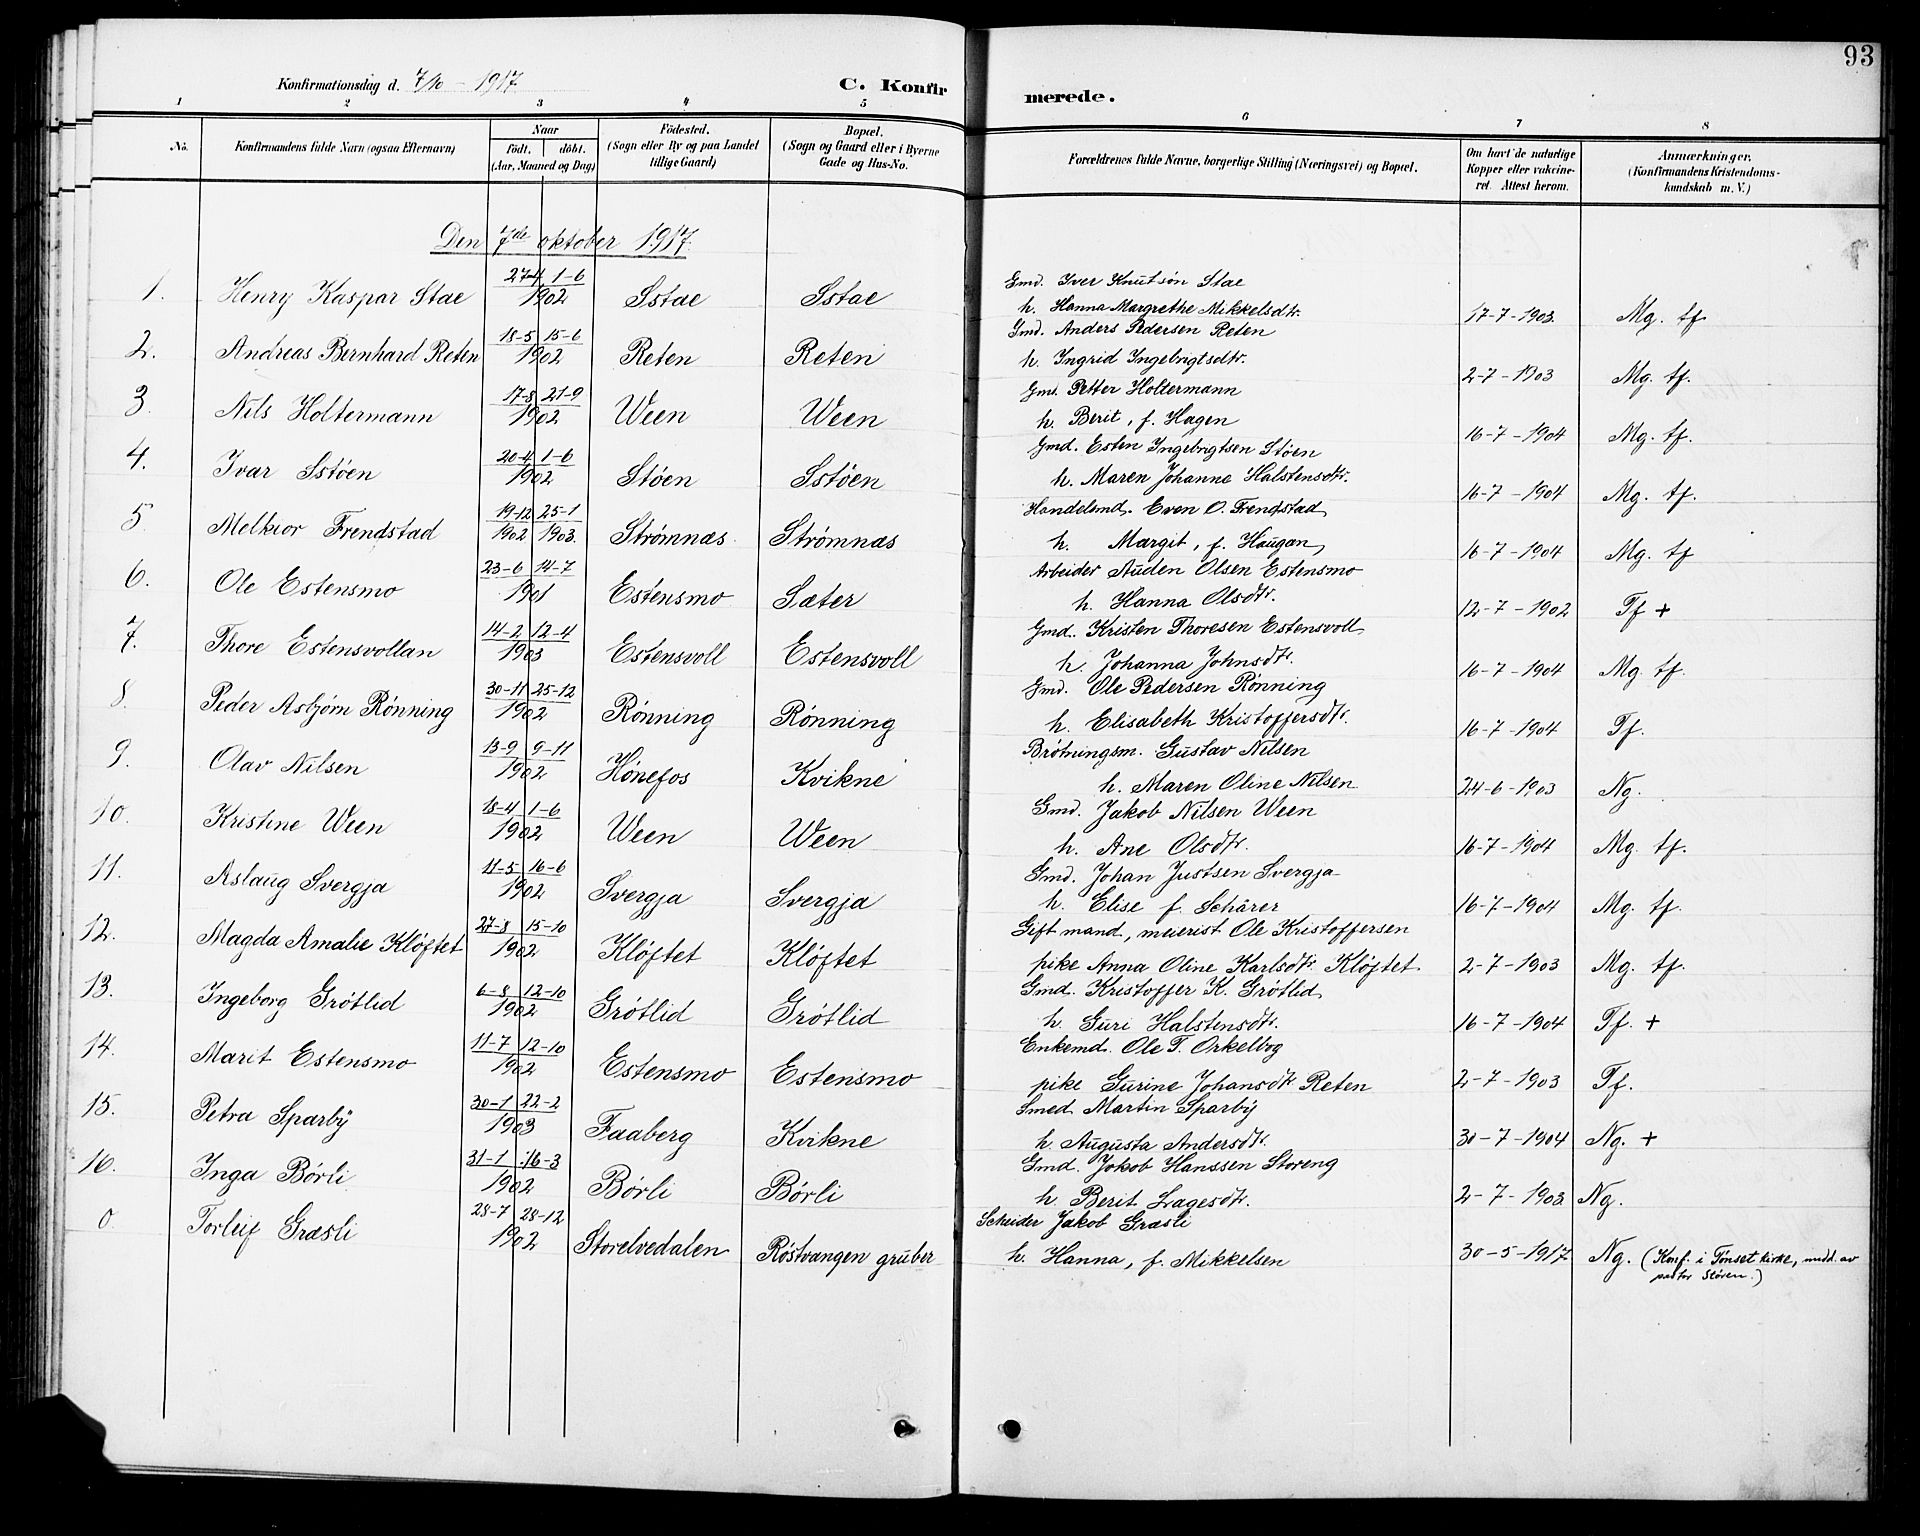 93
Konfirmationsdag d. 7/10 - 1917
C. Konfirmerede.
1 2 3 4 5 6 7 8
No.
Konfirmandens fulde Navn (ogsaa Efternavn)
Naar
födt. döbt.
(Aar, Maaned og Dag)
Födested.
(Sogn eller By og paa Landet
tillige Gaard)
Bopæl.
(Sogn og Gaard eller i Byerne
Gade og Hus-No.
Forældrenes fulde Navne, borgerlige Stilling (Næringsvei) og Bopæl.
Om havt de naturlige
Kopper eller vakcine-
ret. Attest herom.
Anmærkninger.
(Konfirmandens Kristendoms-
kundskab m. V.)
Den 7de oktober 1917.
1. Henry Kaspar Stae 27-4 1-6 1902 Sstae Sstae Gmd. Iver Knutsøn Stae
h. Hanna Margrethe Mikkelsdtr. 17-7-1903. Mg. tf
2. Andreas Bernhard Reten 18-5 15-6 1902 Reten Reten Gmd. Anders Pedersen Reten
h. Ingrid Ingebrigtsdtr. 2-7-1903 Mg. tf.
3. Nils Holtermann 17-8 21-9 1902 Ween Ween Gmd. Petter Holtermann
h. Berit, f. Hagen 16-7-1904 Mg. tf.
4. Ivar Sstöen 20-4 1-6 1902 Stöen Sstöen Gmd. Esten Ingebrigtsen Stöen
h. Maren Johanne Halstensdtr. 16-7-1904 Mg. tf.
5. Melkior Frendstad 19-12 1902 25-1 1903. Strømnæs Strømnæs Handelsmd. Even O. Frengstad
h. Margit, f. Haugan 16-7-1904 Mg. tf
6. Ole Estensmo 23-6 14-7 1901 Estensmo Sæter Arbeider Auden Olsen Estensmo
h. Hanna Olsdtr. 12-7-1902 Tf +
7. Thore Estensvollan 14-2 12-4 1903 Estensvoll Estensvoll Gmd. Kristen Thoresen Estensvoll
h. Johanna Johnsdtr. 16-7-1904 Mg. tf.
8. Peder Asbjørn Rønning 30-11 25-12 1902 Rønning Rønning Gmd. Ole Pedersen Rønning
h. Elisabeth Kristoffersdtr. 16-7-1904 Tf.
9. Olav Nilsen 13-9 9-11 1902 Hönefos Kvikne Brötningsm. Gustav Nilsen
h. Maren Oline Nilsen 24-6-1903 Ng.
10. Kristine Ween 18-4 1-6 1902 Ween Ween Gmd. Jakob Nilsen Ween
h. Ane Olsdtr. 16-7-1904 Mg. tf.
11. Aslaug Svergja 11-5 16-6 1902 Svergja Svergja Gmd. Johan Justsen Svergja
h. Elise f. Schärer 16-7-1904 Mg. tf.
12. Magda Amalie Klöftet 27-8 15-10 1902 Klöftet Klöftet Gift mand, meierist Ole Kristoffersen
pike Anna Oline Karlsdtr. Klöftet 2-7-1903 Mg. tf.
13. Ingeborg Grötlid 6-8 12-10 1902 Grötlid Grötlid Gmd. Kristoffer K. Grötlid
h. Guri Halstensdtr. 16-7-1904 Tf. +
14. Marit Estensmo 11-7 12-10 1902 Estensmo Estensmo Enkemd. Ole T. Orkelbog
pike Gurine Johansdtr Reten 2-7-1903 Tf.
15. Petra Sparby 30-1 22-2 1903 Faaberg Kvikne Smed Martin Sparby
h Augusta Andersdtr. 30-7-1904 Ng. +
16. Inga Börli 31-1 16-3 1902 Börli Börli Gmd. Jokob Hanssen Storeng
h Berit Lagesdtr. 2-7-1903 Ng.
0. Torleif Græsli 28-7 28-12 1902 Storelvedalen Röstvangen gruber Scheider Jakob Græsli
h. Hanna, f. Mikkelsen 30-5-1917 Ng. (Konf. i Tönset kirke, medd. av
pastor Stören.)